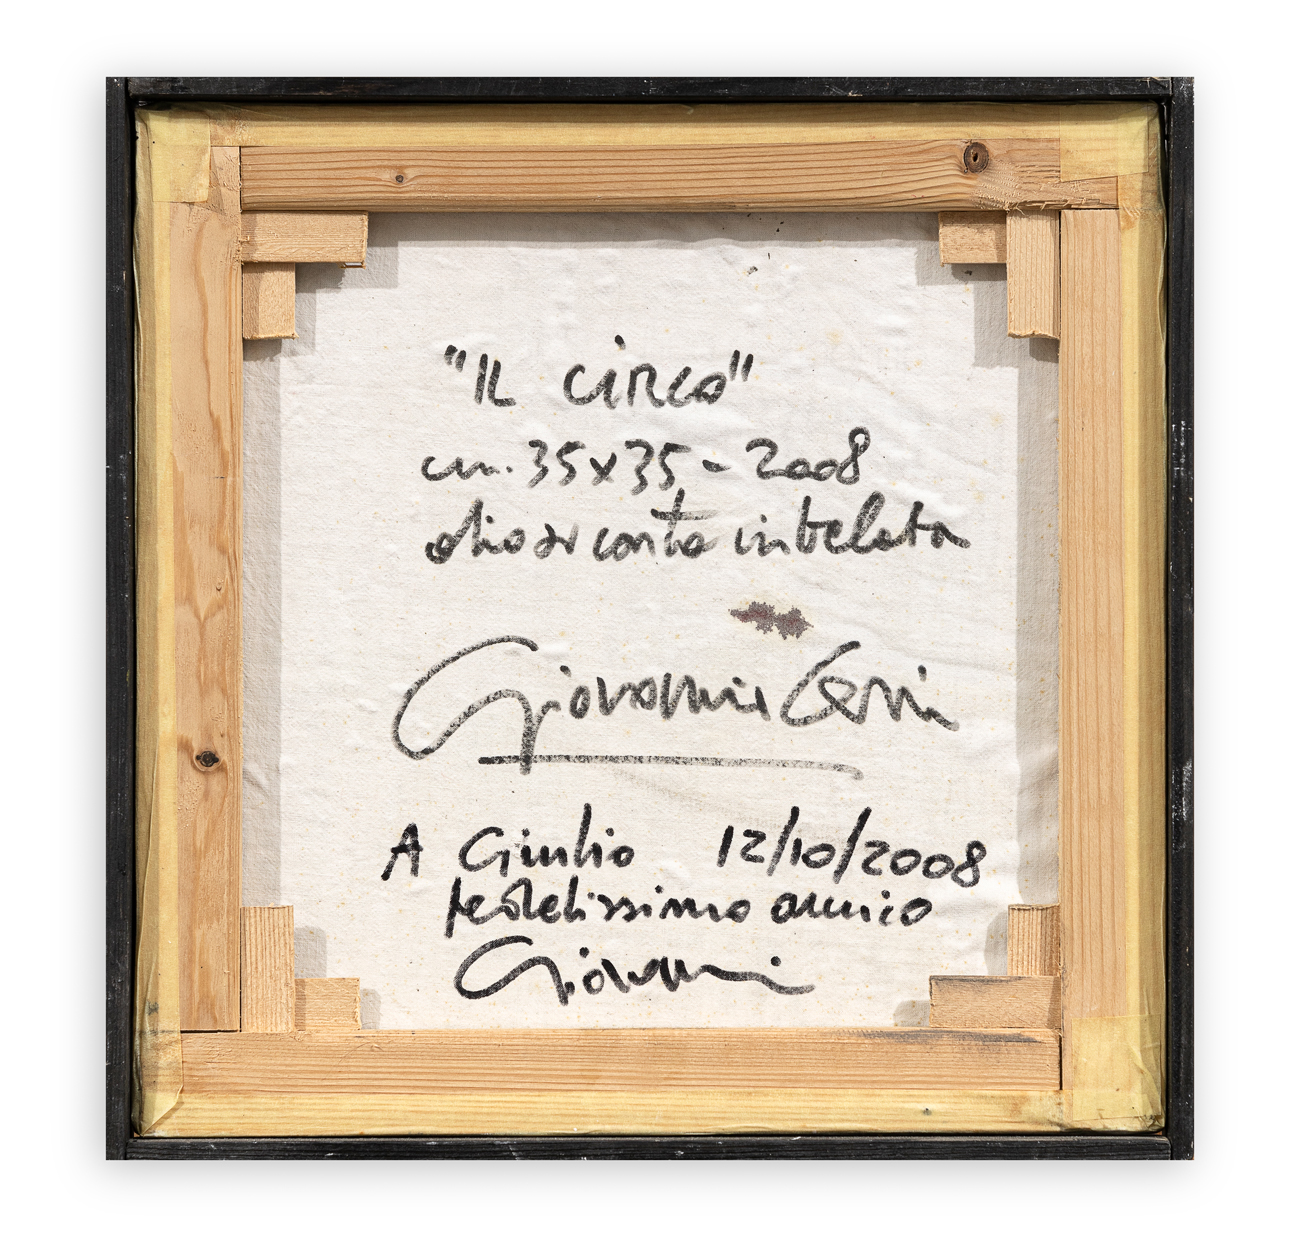 "IL CIRCO"
cm. 35x35 - 2008
olio su carta intelata
Giovanni Cerri
A Giulio 12/10/2008
fedelissimo amico
Giovanni